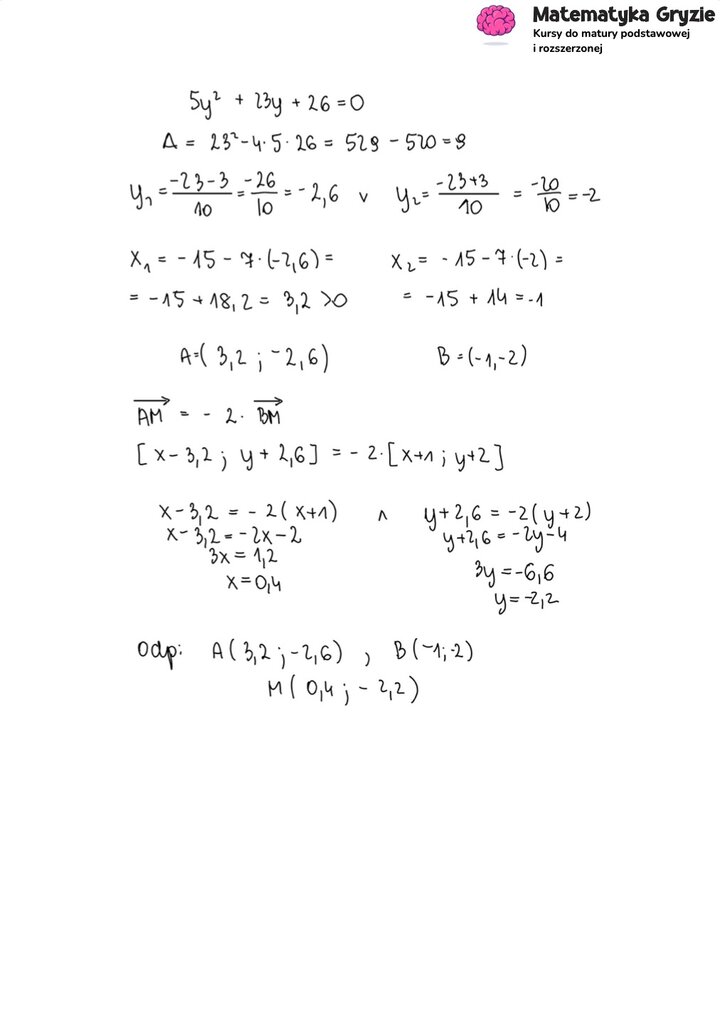 Matematyka Gryzie
Kursy do matury podstawowej
i rozszerzonej
5y² + 23y + 26 = 0
Δ = 23² - 4·5·26 = 529 - 520 = 9
y₁ = (-23-3)/10 = -26/10 = -2,6 ∨ y₂ = (-23+3)/10 = -20/10 = -2
x₁ = -15 - 7·(-2,6) = x₂ = -15 - 7·(-2) =
= -15 + 18,2 = 3,2 > 0 = -15 + 14 = -1
A=(3,2 ; -2,6) B = (-1,-2)
AM→ = -2· BM→
[x-3,2 ; y+2,6] = -2·[x+1 ; y+2]
x-3,2 = -2(x+1) ∧ y+2,6 = -2(y+2)
x-3,2 = -2x-2 y+2,6 = -2y-4
3x = 1,2 3y = -6,6
x = 0,4 y = -2,2
Odp: A(3,2 ; -2,6) , B(-1;-2)
M(0,4 ; -2,2)